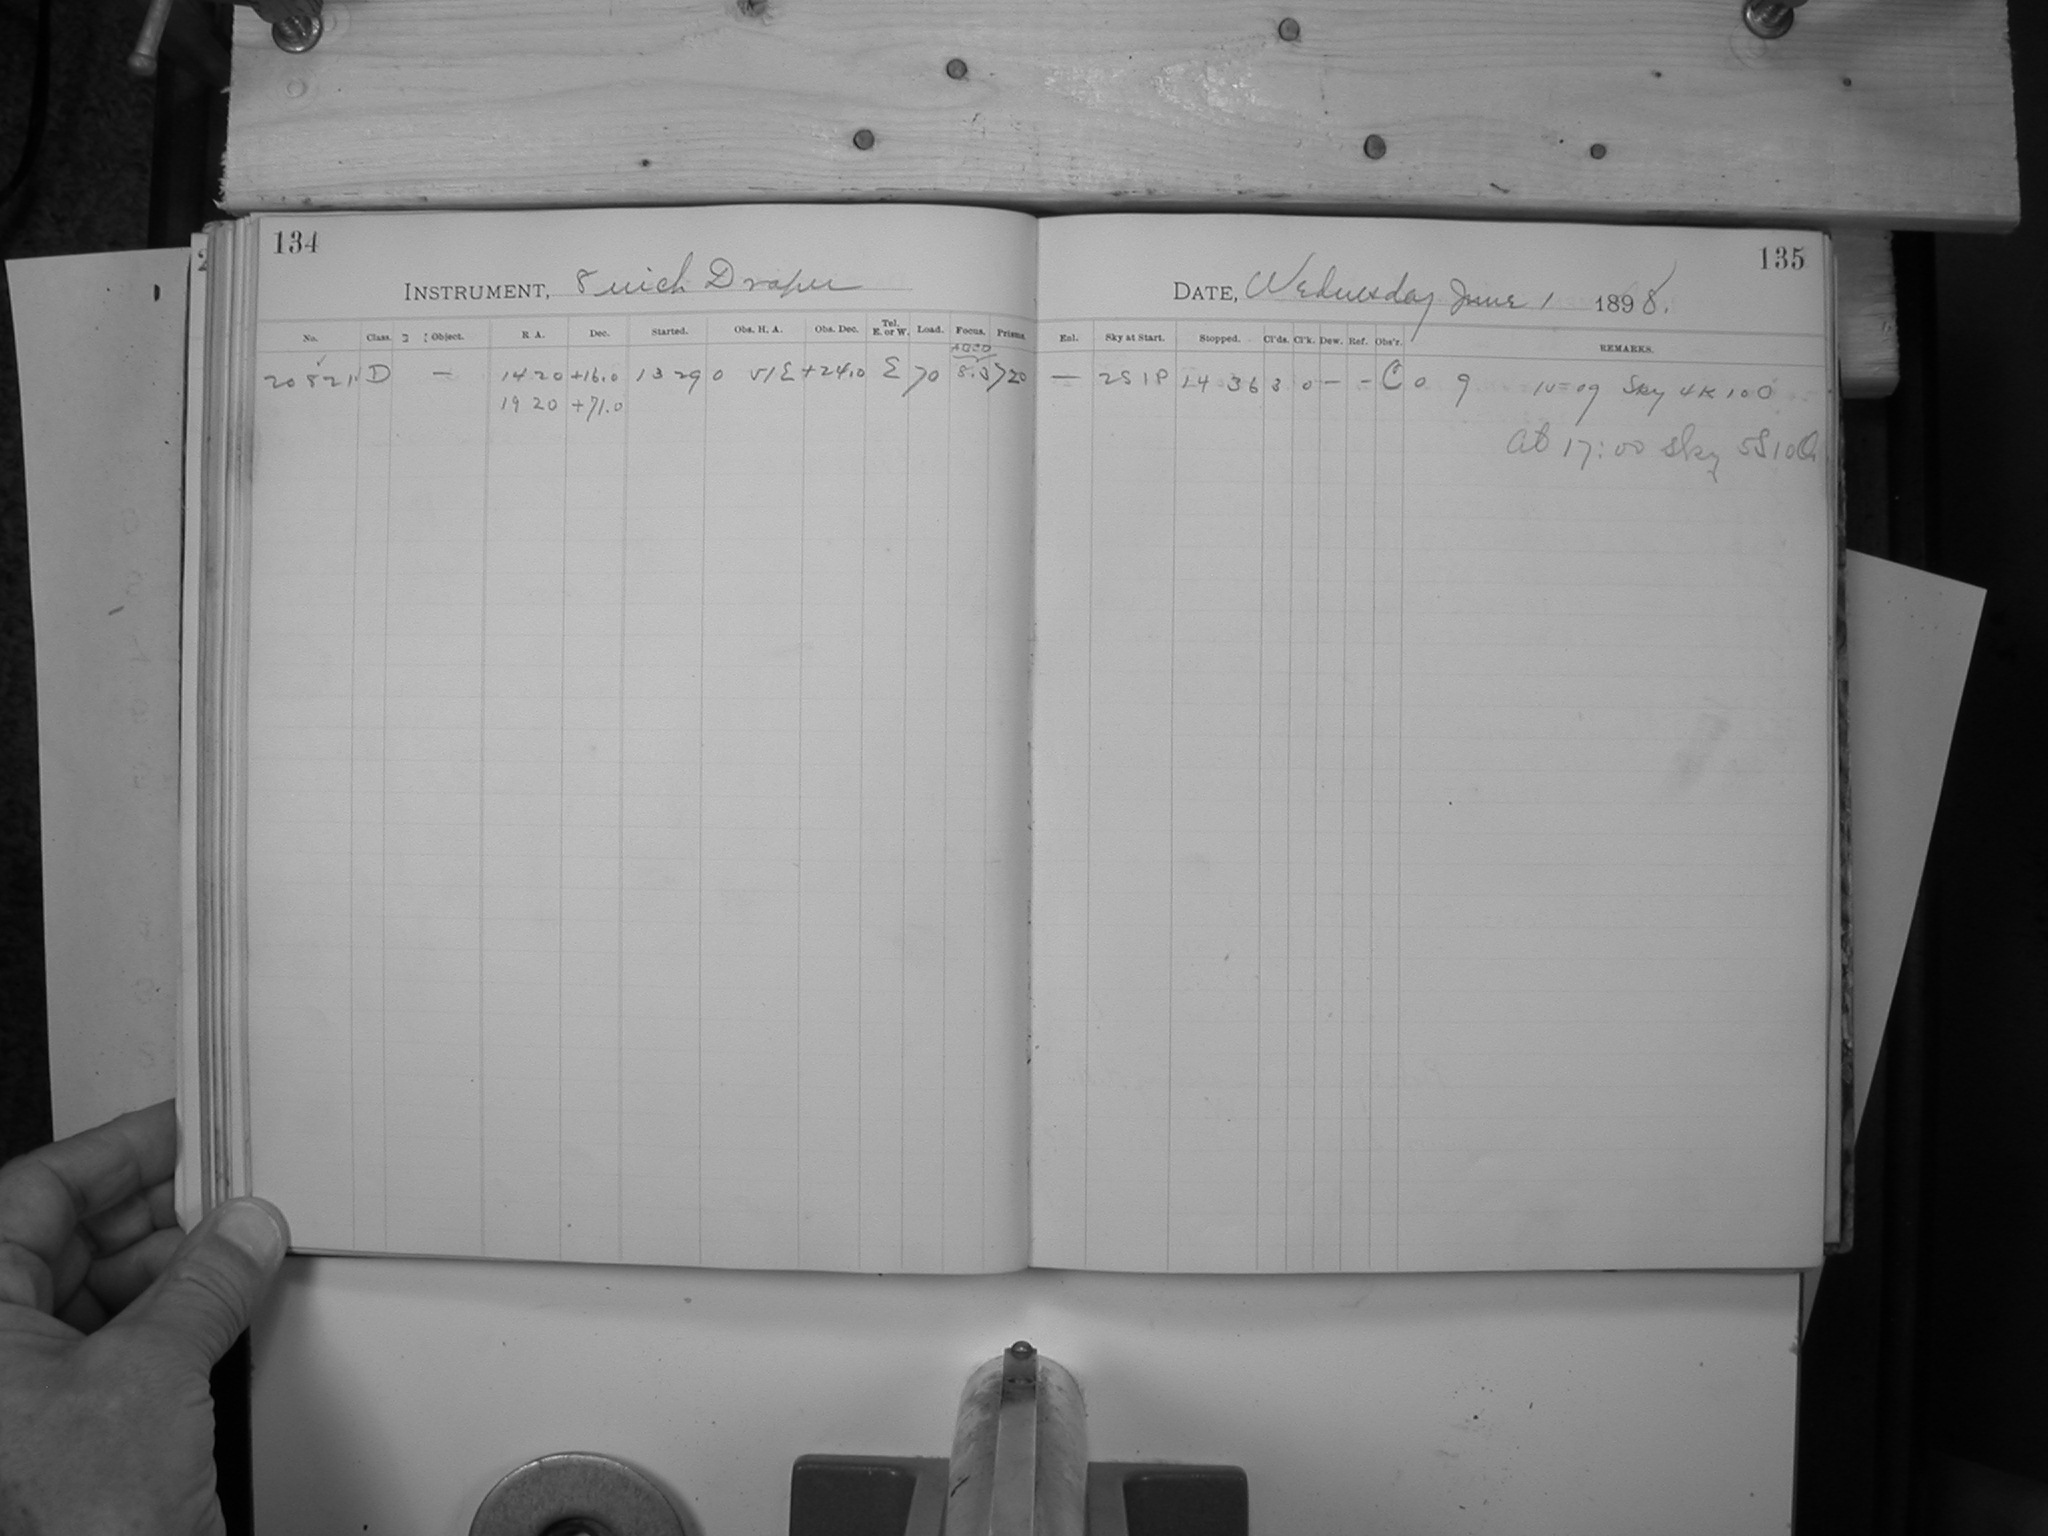 134
INSTRUMENT, 8 inch Draper
No. Class. Object. R A. Dec. Started. Obs. H. A. Obs. Dec. Tel. E. or W. Load. Focus. Prisms.
20821 D — 14 20 +16.0 13 29 0 51 E +24.0 E 70 8.3 720
19 20 +71.0
135
DATE, Wednesday June 1 1898.
Enl. Sky at Start. Stopped. Cl'ds. Cl'k. Dew. Ref. Obs'r. REMARKS.
— 2S 1P 14 36 3 0 — - C 0 9 Sky 4K 10 0
at 17:00 Sky 5S10